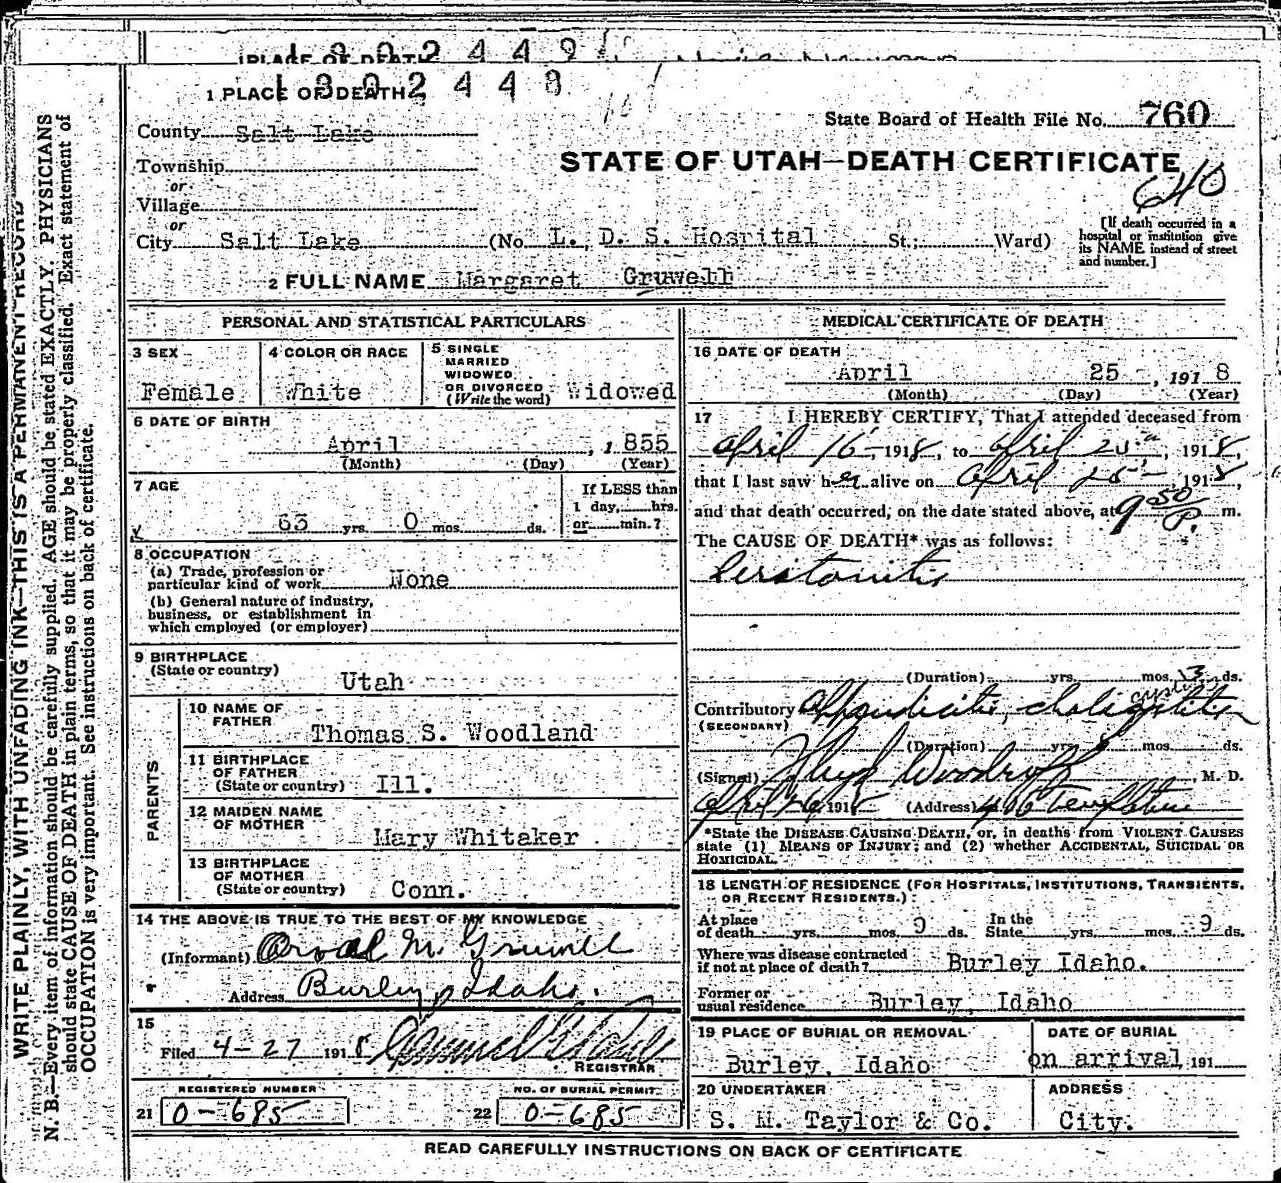 1302449
PLACE OF DEATH
1302448
1 PLACE OF DEATH
County Salt Lake
State Board of Health File No. 760
Township
STATE OF UTAH—DEATH CERTIFICATE
or
640
Village
or
City Salt Lake (No. L. D. S. Hospital St.; Ward)
[If death occurred in a
hospital or institution give
its NAME instead of street
and number.]
2 FULL NAME Margaret Gruwell
PERSONAL AND STATISTICAL PARTICULARS
3 SEX Female
4 COLOR OR RACE White
5 SINGLE
MARRIED
WIDOWED
OR DIVORCED
(Write the word) Widowed
6 DATE OF BIRTH
April , 1855
(Month) (Day) (Year)
7 AGE
63 yrs. 0 mos. ds.
If LESS than
1 day, hrs.
or min.?
8 OCCUPATION
(a) Trade, profession or
particular kind of work None
(b) General nature of industry,
business, or establishment in
which employed (or employer)
9 BIRTHPLACE
(State or country) Utah
PARENTS
10 NAME OF
FATHER Thomas S. Woodland
11 BIRTHPLACE
OF FATHER
(State or country) Ill.
12 MAIDEN NAME
OF MOTHER Mary Whitaker
13 BIRTHPLACE
OF MOTHER
(State or country) Conn.
14 THE ABOVE IS TRUE TO THE BEST OF MY KNOWLEDGE
(Informant) Orval M. Gruwell
Address Burley, Idaho.
15
Filed 4-27 1918
REGISTRAR
REGISTERED NUMBER
21 0-685
NO. OF BURIAL PERMIT
22 0-685
MEDICAL CERTIFICATE OF DEATH
16 DATE OF DEATH
April 25 , 1918
(Month) (Day) (Year)
17 I HEREBY CERTIFY, That I attended deceased from
April 16 , 1918, to April , 1918,
that I last saw her alive on April 25 , 1918,
and that death occurred, on the date stated above, at 9 50 P. m.
The CAUSE OF DEATH* was as follows:
Peritonitis
(Duration) yrs. mos. 13 ds.
Contributory Appendicitis,
(SECONDARY)
(Duration) yrs. mos. ds.
(Signed) Woodruff, M. D.
April 26 1918 (Address)
*State the DISEASE CAUSING DEATH, or, in deaths from VIOLENT CAUSES
state (1) MEANS OF INJURY; and (2) whether ACCIDENTAL, SUICIDAL OR
HOMICIDAL.
18 LENGTH OF RESIDENCE (FOR HOSPITALS, INSTITUTIONS, TRANSIENTS,
OR RECENT RESIDENTS.)
At place
of death yrs. mos. 9 ds.
In the
State yrs. mos. 9 ds.
Where was disease contracted
if not at place of death? Burley Idaho.
Former or
usual residence Burley, Idaho
19 PLACE OF BURIAL OR REMOVAL
Burley, Idaho
DATE OF BURIAL
on arrival, 191
20 UNDERTAKER
S. M. Taylor & Co.
ADDRESS
City.
READ CAREFULLY INSTRUCTIONS ON BACK OF CERTIFICATE
WRITE PLAINLY, WITH UNFADING INK—THIS IS A PERMANENT RECORD
N. B.—Every item of information should be carefully supplied. AGE should be stated EXACTLY. PHYSICIANS
should state CAUSE OF DEATH in plain terms, so that it may be properly classified. Exact statement of
OCCUPATION is very important. See instructions on back of certificate.